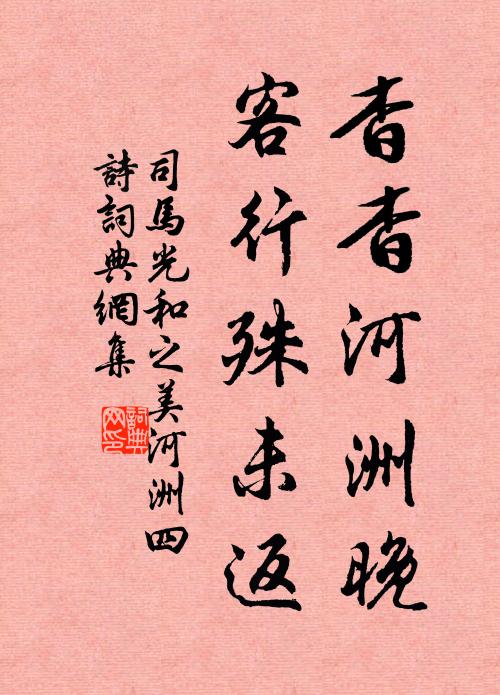 杳杳河洲晚
客行殊未返
司馬光和之美河洲四
詩詞典網集
詞典
网印